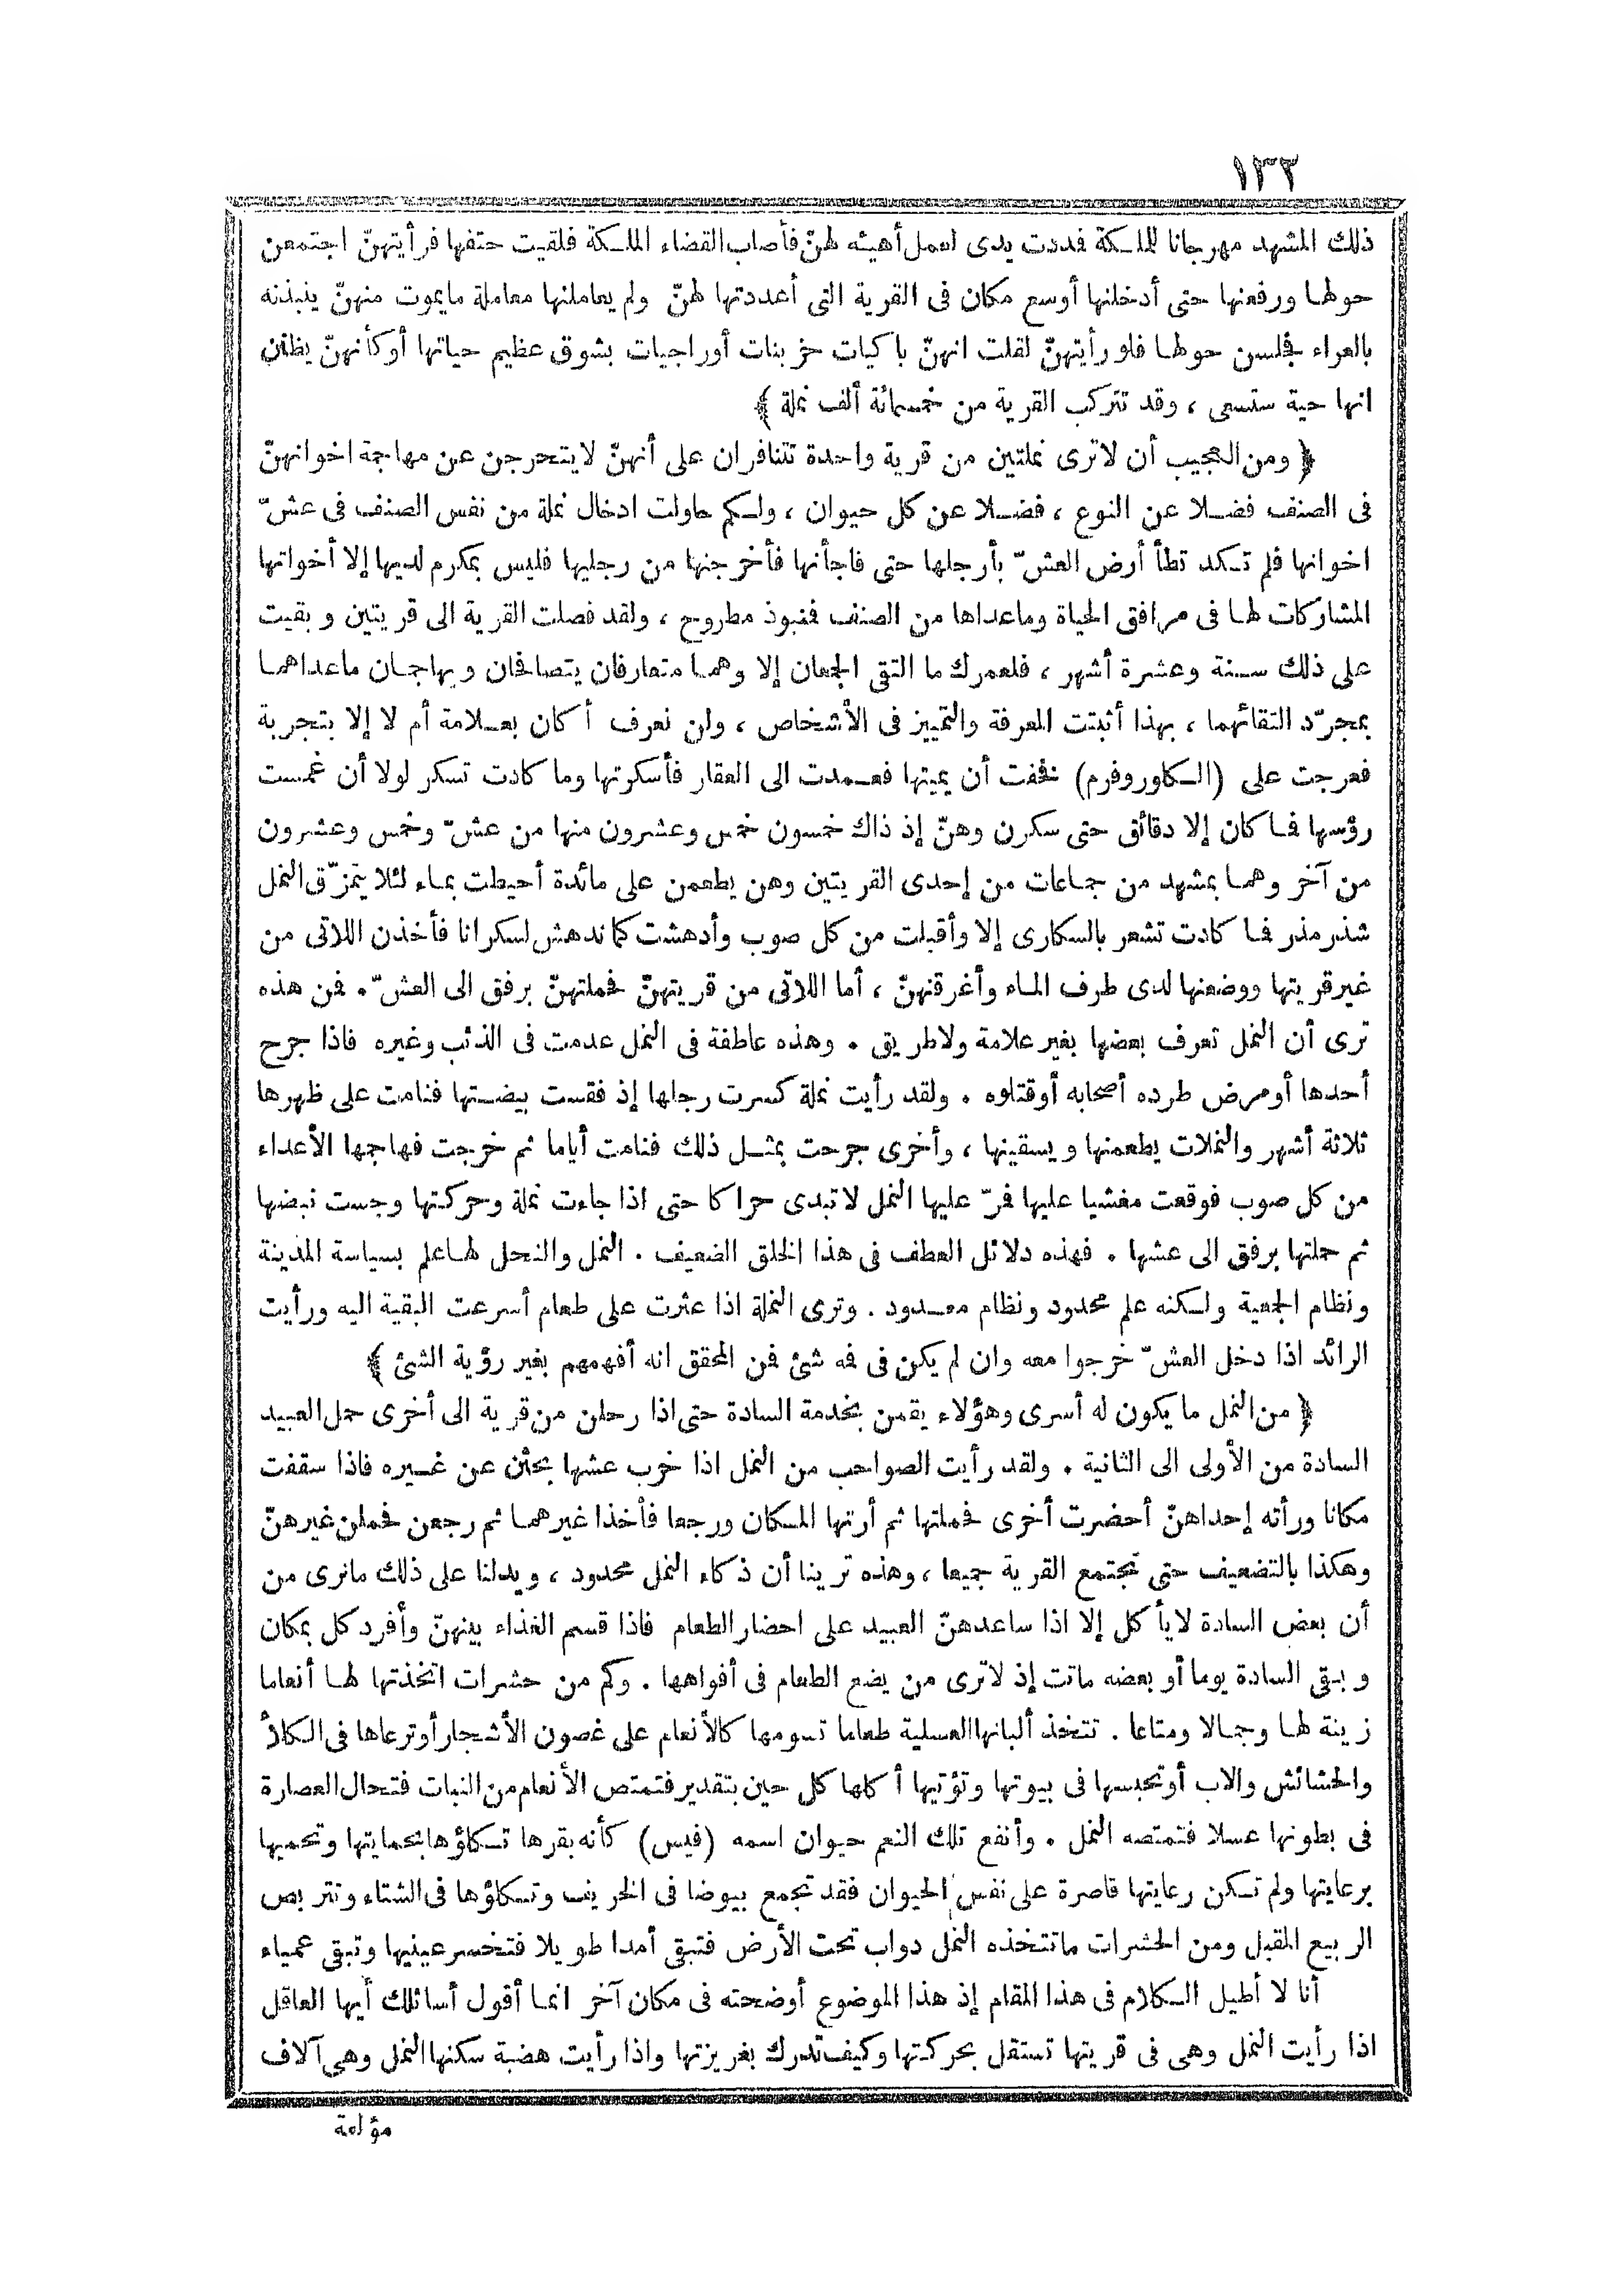 ١٣٢
ذلك المشهد مهرجانا للملكة فمددت يدى لعمل أهيئه لهنّ فأصاب القضاء الملكة فلقيت حتفها فرأيتهنّ اجتمعن
حولها ورفعنها حتى أدخلنها أوسع مكان فى القرية التى أعددتها لهنّ ولم يعاملنها معاملة ما يموت منهنّ ينبذنه
بالعراء فجلسن حولها فلو رأيتهنّ لقلت انهنّ باكيات حزينات أو راجيات بشوق عظيم حياتها أو كأنهنّ يظننّ
انها حية ستسعى ، وقد تتركب القرية من خمسمائة ألف نملة ﴾
﴿ ومن العجيب أن لاترى نملتين من قرية واحدة تتنافران على أنهنّ لايتحرجن عن مهاجمة اخوانهنّ
فى الصنف فضلا عن النوع ، فضلا عن كل حيوان ، ولكم حاولت ادخال نملة من نفس الصنف فى عشّ
اخوانها فلم تكد تطأ أرض العشّ بأرجلها حتى فاجأنها فأخرجنها من رجليها فليس بمكرم لديها إلا أخواتها
المشاركات لها فى مرافق الحياة وماعداها من الصنف فمنبوذ مطروح ، ولقد فصلت القرية الى قريتين وبقيت
على ذلك سنة وعشرة أشهر ، فلعمرك ما التقى الجمعان إلا وهما متعارفان يتصافحان ويهاجمان ماعداهما
بمجرّد التقائهما ، بهذا أثبتت المعرفة والتمييز فى الأشخاص ، ولن نعرف أكان بعلامة أم لا إلا بتجربة
فعرجت على (الكلوروفرم) نخفت أن يميتها فعمدت الى العقار فأسكرتها وما كادت تسكر لولا أن غمست
رؤسها فما كان إلا دقائق حتى سكرن وهنّ إذ ذاك خمسون خمس وعشرون منها من عشّ وخمس وعشرون
من آخر وهما بمشهد من جماعات من إحدى القريتين وهن يطعمن على مائدة أحيطت بماء لئلا يتمزّق النمل
شذر مذر فما كادت تشعر بالسكارى إلا وأقبلت من كل صوب وأدهشت كما ندهش لسكرانا فأخذن اللاتى من
غير قريتها ووضعنها لدى طرف الماء وأغرقنهنّ ، أما اللاتى من قريتهنّ فحملتهنّ برفق الى العشّ . فمن هذه
ترى أن النمل تعرف بعضها بغير علامة ولا طريق . وهذه عاطفة فى النمل عدمت فى الذئب وغيره فاذا جرح
أحدها أو مرض طرده أصحابه أو قتلوه . ولقد رأيت نملة كسرت رجلها إذ فقست بيضتها فنامت على ظهرها
ثلاثة أشهر والنملات يطعمنها ويسقينها ، وأخرى جرحت بمثل ذلك فنامت أياما ثم خرجت فهاجمها الأعداء
من كل صوب فوقعت مغشيا عليها فمرّ عليها النمل لا تبدى حراكا حتى اذا جاءت نملة وحركتها وجست نبضها
ثم حملتها برفق الى عشها . فهذه دلائل العطف فى هذا الخلق الضعيف . النمل والنحل لها علم بسياسة المدينة
ونظام الجمعية ولكنه علم محدود ونظام معدود . وترى النملة اذا عثرت على طعام أسرعت البقية اليه ورأيت
الرائد اذا دخل العشّ خرجوا معه وان لم يكن فى فمه شئ فمن المحقق انه أفهمهم بغير رؤية الشئ ﴾
﴿ من النمل ما يكون له أسرى وهؤلاء يقمن بخدمة السادة حتى اذا رحلن من قرية الى أخرى حمل العبيد
السادة من الأولى الى الثانية . ولقد رأيت الصواحب من النمل اذا خرب عشها بحثن عن غيره فاذا سقفت
مكانا ورأته إحداهنّ أحضرت أخرى فحملتها ثم أرتها المكان ورجعا فأخذا غيرهما ثم رجعن فحملن غيرهنّ
وهكذا بالتضعيف حتى تجتمع القرية جميعا ، وهذه ترينا أن ذكاء النمل محدود ، ويدلنا على ذلك مانرى من
أن بعض السادة لا يأكل إلا اذا ساعدهنّ العبيد على احضار الطعام فاذا قسم الغذاء بينهنّ وأفرد كل بمكان
وبقى السادة يوما أو بعضه ماتت إذ لاترى من يضع الطعام فى أفواهها . وكم من حشرات اتخذتها لها أنعاما
زينة لها وجمالا ومتاعا . تتخذ ألبانها العسلية طعاما تسومها كالأنعام على غصون الأشجار أو ترعاها فى الكلأ
والحشائش والاب أو تحبسها فى بيوتها وتؤتيها أكلها كل حين بتقدير فتمتص الأنعام من النبات فتحال العصارة
فى بطونها عسلا فتمتصه النمل . وأنفع تلك النعم حيوان اسمه (فيس) كأنه بقرها تكلؤها بحمايتها وتحميها
برعايتها ولم تكن رعايتها قاصرة على نفس الحيوان فقد تجمع بيوضا فى الخريف وتكلؤها فى الشتاء وتتربص
الربيع المقبل ومن الحشرات ماتتخذه النمل دواب تحت الأرض فتبقى أمدا طويلا فتخسر عينيها وتبقى عمياء
أنا لا أطيل الكلام فى هذا المقام إذ هذا الموضوع أوضحته فى مكان آخر انما أقول أسائلك أيها العاقل
اذا رأيت النمل وهى فى قريتها تستقل بحركتها وكيف تدرك بغريزتها واذا رأيت هضبة سكنها النمل وهى آلاف
مؤلفة